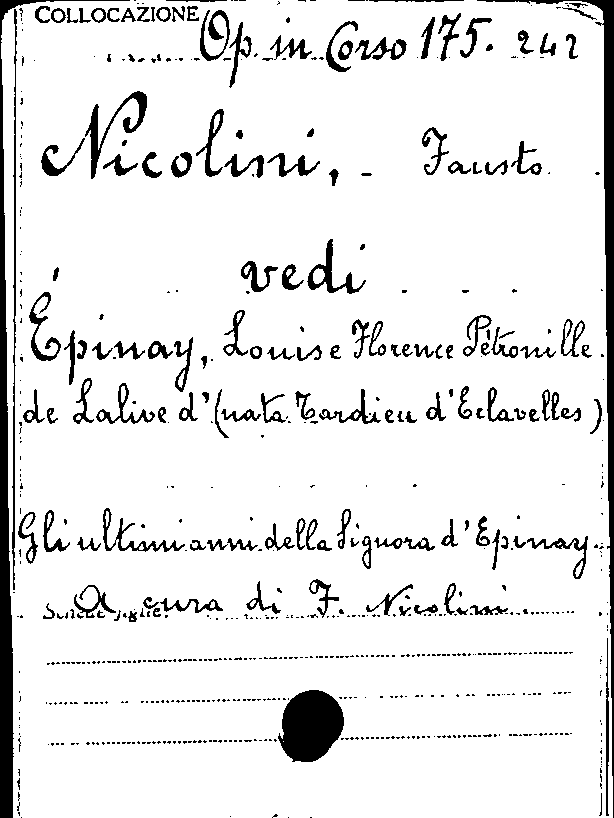 COLLOCAZIONE Op. in Corso 175. 242
Nicolini, - Fausto
vedi
Épinay, Louise Florence Pétronille
de Lalive d' (nata Tardieu d'Eclavelles)
Gli ultimi anni della Signora d'Epinay.
A cura di F. Nicolini.